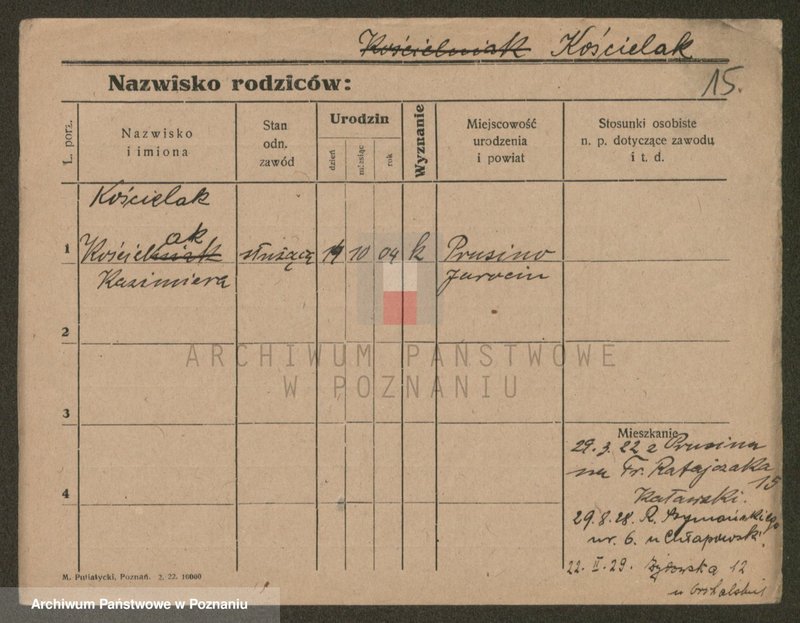 Kościelniak Kościelak
15.
Nazwisko rodziców:
L. porz.
Nazwisko
i imiona
Stan
odn.
zawód
Urodzin
dzień
miesiąc
rok
Wyznanie
Miejscowość
urodzenia
i powiat
Stosunki osobiste
n. p. dotyczące zawodu
i t. d.
Kościelak
1 Kościelniak ak służącą 14 10 04 k Prusino
Kazimiera Jarocin
2
3
4
Mieszkanie
29.3.22 z Prusina
na Fr. Ratajczaka
15
29.8.28. R. Szymańskiego
nr. 6. u Chłapowski.
22. II. 29. 12
u
M. Putiatycki, Poznań. 2. 22. 10000
ARCHIWUM PAŃSTWOWE
W POZNANIU
Archiwum Państwowe w Poznaniu